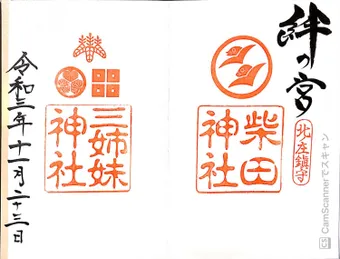 絆の宮
北庄鎮守
柴田
神社
三姉妹
神社
令和三年十一月二十三日
CS CamScannerでスキャン